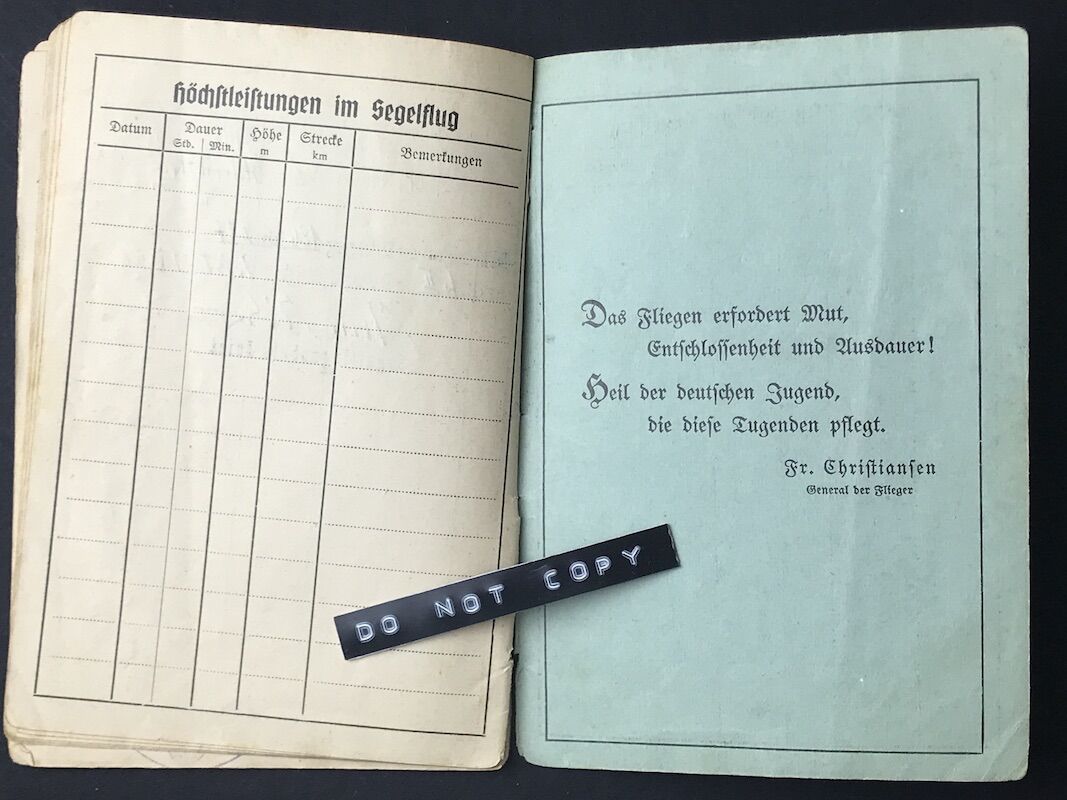 Höchstleistungen im Segelflug
Datum Dauer Höhe Strecke Bemerkungen
Std. Min. m km
Das Fliegen erfordert Mut,
Entschlossenheit und Ausdauer!
Heil der deutschen Jugend,
die diese Tugenden pflegt.
Fr. Christiansen
General der Flieger
DO NOT COPY